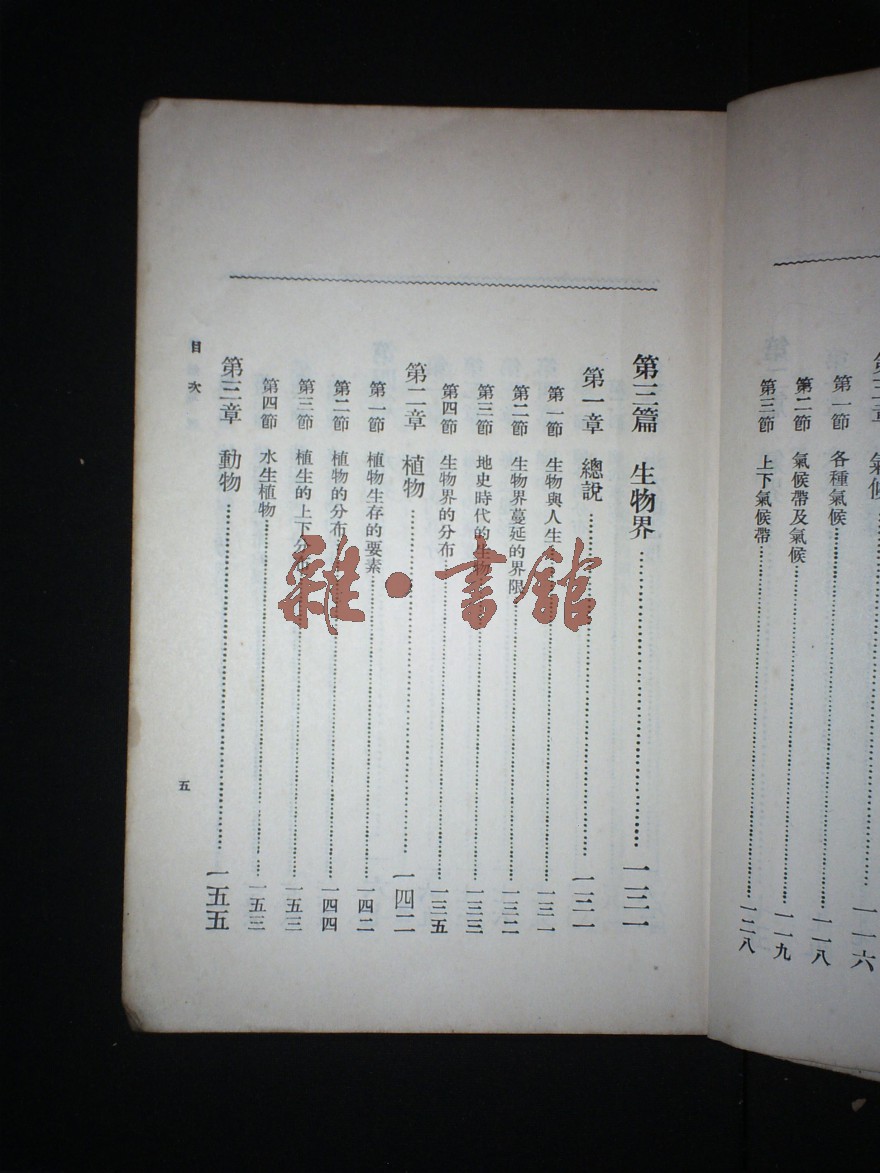 章 氣候……一一六
第一節 各種氣候……一一八
第二節 氣候帶及氣候……一一九
第三節 上下氣候帶……一二八
第三篇 生物界……一三一
第一章 總說……一三一
第一節 生物與人生……一三一
第二節 生物界蔓延的界限……一三二
第三節 地史時代的生物……一三三
第四節 生物界的分布……一三五
第二章 植物……一四二
第一節 植物生存的要素……一四二
第二節 植物的分布……一四四
第三節 植生的上下分布……一五三
第四節 水生植物……一五三
第三章 動物……一五五
目次
五
雜·書館